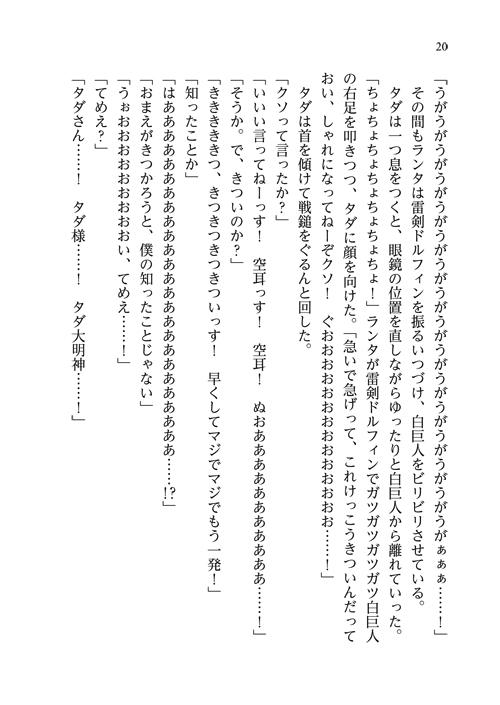 20
「うがうがうがうがうがうがうがうがうがうがうがうがうがうがぁぁぁ……！」
その間もランタは雷剣ドルフィンを振るいつづけ、白巨人をビリビリさせている。
タダは一つ息をつくと、眼鏡の位置を直しながらゆったりと白巨人から離れていった。
「ちょちょちょちょちょちょちょちょ！」ランタが雷剣ドルフィンでガツガツガツガツ白巨人
の右足を叩きつつ、タダに顔を向けた。「急いで急げって、これけっこうきついんだって
おい、しゃれになってねーぞクソ！　ぐおおおおおおおおおおおおおお……！」
タダは首を傾けて戦鎚をぐるんと回した。
「クソって言ったか？」
「いいい言ってねーっす！　空耳っす！　空耳！　ぬおああああああああああ……！」
「そうか。で、きついのか？」
「きききききつ、きつきつきつきついっす！　早くしてマジでマジでもう一発！」
「知ったことか」
「はああああああああああああああああああああああ……!?
「おまえがきつかろうと、僕の知ったことじゃない」
「うぉおおおおおおおおおおおい、てめえ……！」
「てめえ？」
「タダさん……！　タダ様……！　タダ大明神……！」